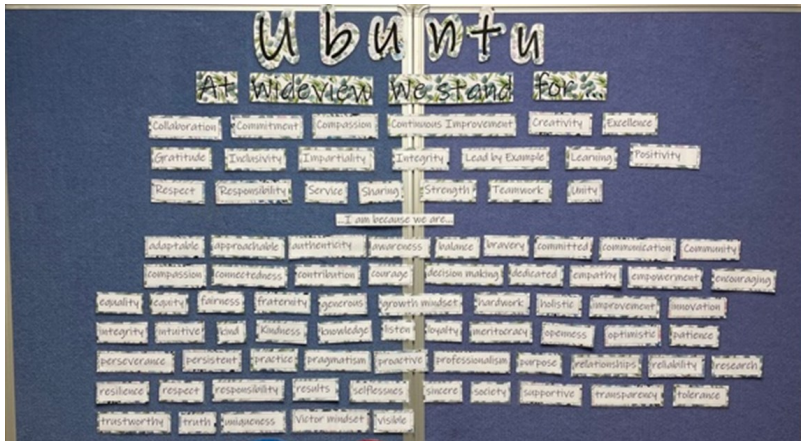 Ubuntu
At Wideview We stand for...
Collaboration Commitment Compassion Continuous Improvement Creativity Excellence
Gratitude Inclusivity Impartiality Integrity Lead by Example Learning Positivity
Respect Responsibility Service Sharing Strength Teamwork Unity
...I am because we are...
adaptable approachable authenticity awareness balance bravery committed communication Community
compassion connectedness contribution courage decision making dedicated empathy empowerment encouraging
equality equity fairness fraternity generous growth mindset hardwork holistic improvement innovation
integrity intuitive kind Kindness knowledge listen loyalty meritocracy openness optimistic patience
perseverance persistent practice pragmatism proactive professionalism purpose relationships reliability research
resilience respect responsibility results selflessness sincere society supportive transparency tolerance
trustworthy truth uniqueness Victor mindset visible